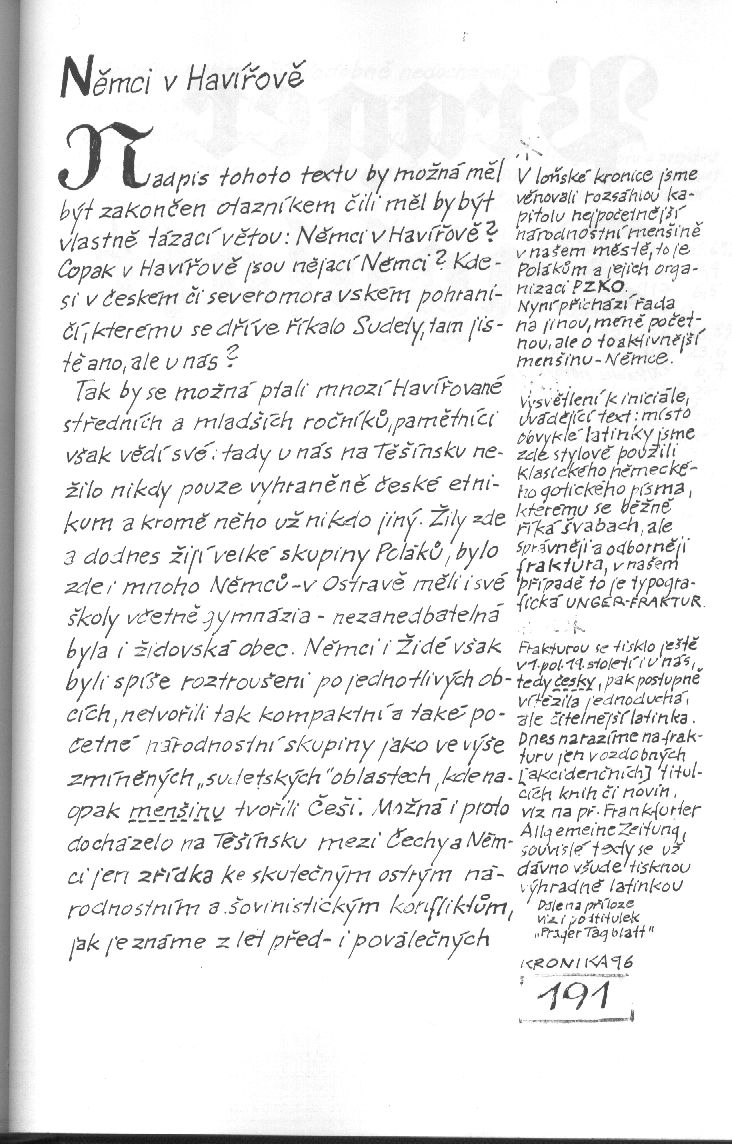 Němci v Havířově
Nadpis tohoto textu by možná měl
být zakončen otazníkem čili měl by být
vlastně tázací větou: Němci v Havířově?
Copak v Havířově jsou nějací Němci? Kde-
si v českém či severomoravském pohrani-
čí, kterému se dříve říkalo Sudety, tam jis-
tě ano, ale u nás?
Tak by se možná ptali mnozí Havířované
středních a mladších ročníků, pamětníci
však vědí své: tady u nás na Těšínsku ne-
žilo nikdy pouze vyhraněně české etni-
kum a kromě něho už nikdo jiný. Žily zde
a dodnes žijí velké skupiny Poláků, bylo
zde i mnoho Němců - v Ostravě měli i své
školy včetně gymnázia - nezanedbatelná
byla i židovská obec. Němci i Židé však
byli spíše roztroušeni po jednotlivých ob-
cích, netvořili tak kompaktní a také po-
četné národnostní skupiny jako ve výše
zmíněných „sudetských" oblastech, kde na-
opak menšinu tvořili Češi. Možná i proto
docházelo na Těšínsku mezi Čechy a Něm-
ci jen zřídka ke skutečným ostrým ná-
rodnostním a šovinistickým konfliktům,
jak je známe z let před- i poválečných
V loňské kronice jsme
věnovali rozsáhlou ka-
pitolu nejpočetnější
národnostní menšině
v našem městě, to je
Polákům a jejich orga-
nizaci PZKO.
Nyní přichází řada
na jinou, méně počet-
nou, ale o to aktivnější
menšinu - Němce.
Vysvětlení k iniciále,
uvádějící text: místo
obvyklé latinky jsme
zde stylově použili
klasického německé-
ho gotického písma,
kterému se běžně
říká švabach, ale
správněji a odborněji
fraktura, v našem
případě to je typogra-
fická UNGER-FRAKTUR.
Frakturou se tisklo ještě
v 1. pol. 19. století i u nás,
tedy česky, pak postupně
vítězila jednoduchá,
ale čitelnější latinka.
Dnes narazíme na frak-
turu jen v ozdobných
[akcidenčních] titul-
cích knih či novin,
viz na př. Frankfurter
Allgemeine Zeitung,
souvislé texty se už
dávno všude tisknou
výhradně latinkou
Dále na příloze
viz i podtitulek
„Prager Tagblatt"
KRONIKA 96
191